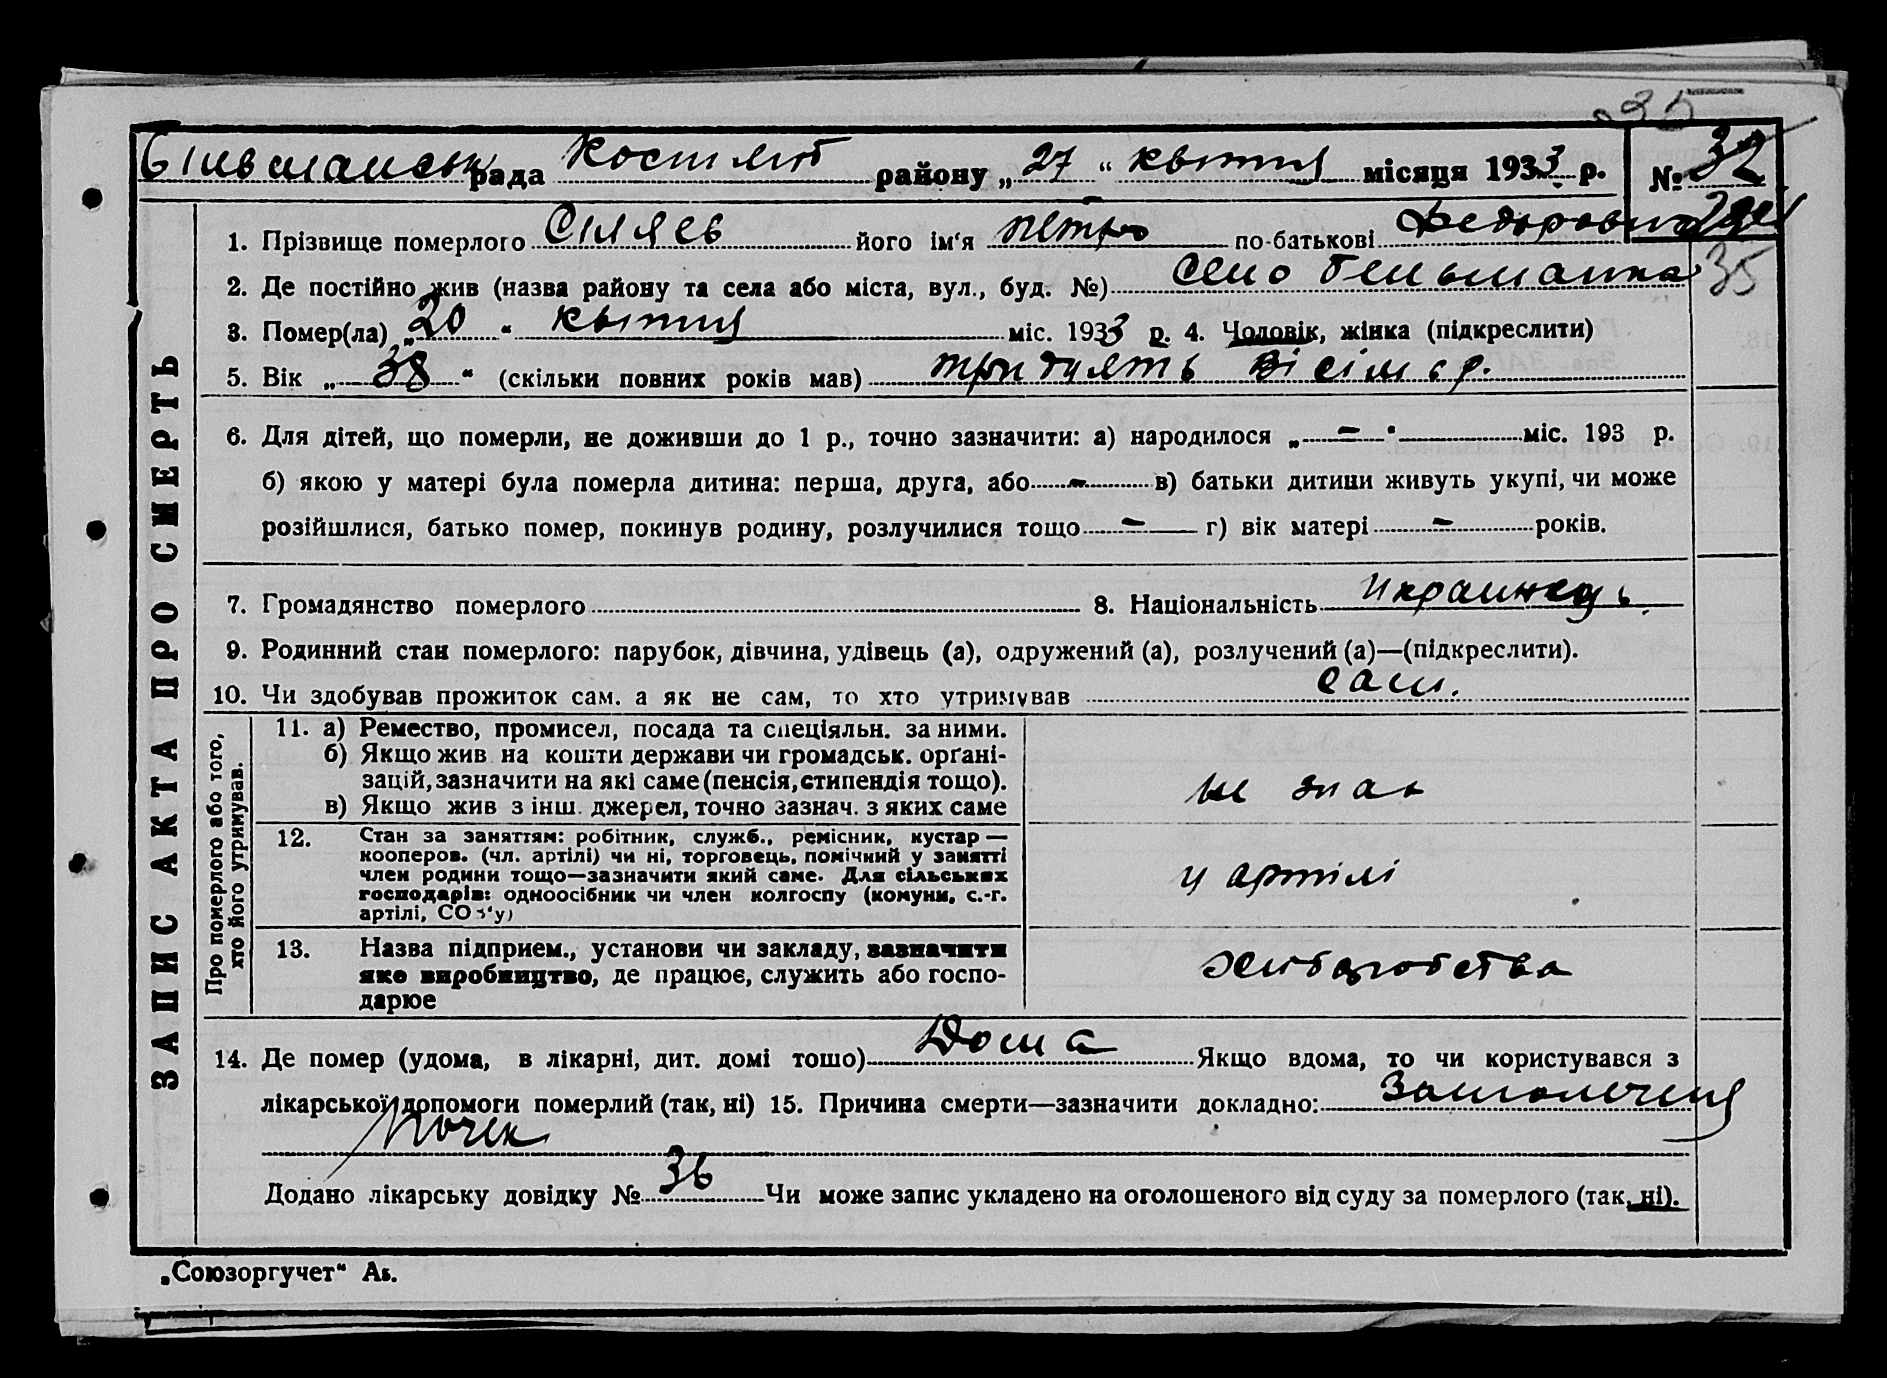 35
рада Костян району „27“ квітня місяця 1933 р. № 32
1. Прізвище померлого Сіляєв його ім'я Петро по-батькові Федорович
35
2. Де постійно жив (назва району та села або міста, вул., буд. №) Село Гельманка
3. Помер(ла) „20“ квітня міс. 1933 р. 4. Чоловік, жінка (підкреслити)
5. Вік „38“ (скільки повних років мав) тридцять вісім р.
6. Для дітей, що померли, не доживши до 1 р., точно зазначити: а) народилося „ – “ міс. 193 р.
б) якою у матері була померла дитина: перша, друга, або – в) батьки дитини живуть укупі, чи може
розійшлися, батько помер, покинув родину, розлучилися тощо – г) вік матері – років.
7. Громадянство померлого 8. Національність Украинець.
9. Родинний стан померлого: парубок, дівчина, удівець (а), одружений (а), розлучений (а)—(підкреслити).
10. Чи здобував прожиток сам. а як не сам, то хто утримував сам.
ЗАПИС АКТА ПРО СМЕРТЬ
Про померлого або того, хто його утримував.
11. а) Ремество, промисел, посада та спеціяльн. за ними.
б) Якщо жив на кошти держави чи громадськ. орґані-
зацій, зазначити на які саме (пенсія, стипендія тощо).
в) Якщо жив з інш. джерел, точно зазнач. з яких саме
не знав
12. Стан за заняттям: робітник, служб., ремісник, кустар —
кооперов. (чл. артілі) чи ні, торговець, помічний у занятті
член родини тощо—зазначити який саме. Для сільських
господарів: одноосібник чи член колгоспу (комуни, с.-г.
артілі, СОЗ'у)
у артілі
13. Назва підприєм., установи чи закладу, зазначити
яке виробництво, де працює, служить або госпо-
дарює
хліборобства
14. Де помер (удома, в лікарні, дит. домі тощо) Дома Якщо вдома, то чи користувався з
лікарської допомоги померлий (так, ні) 15. Причина смерти—зазначити докладно:
почек
Додано лікарську довідку № 36 Чи може запис укладено на оголошеного від суду за померлого (так, ні).
„Союзоргучет“ Аб.